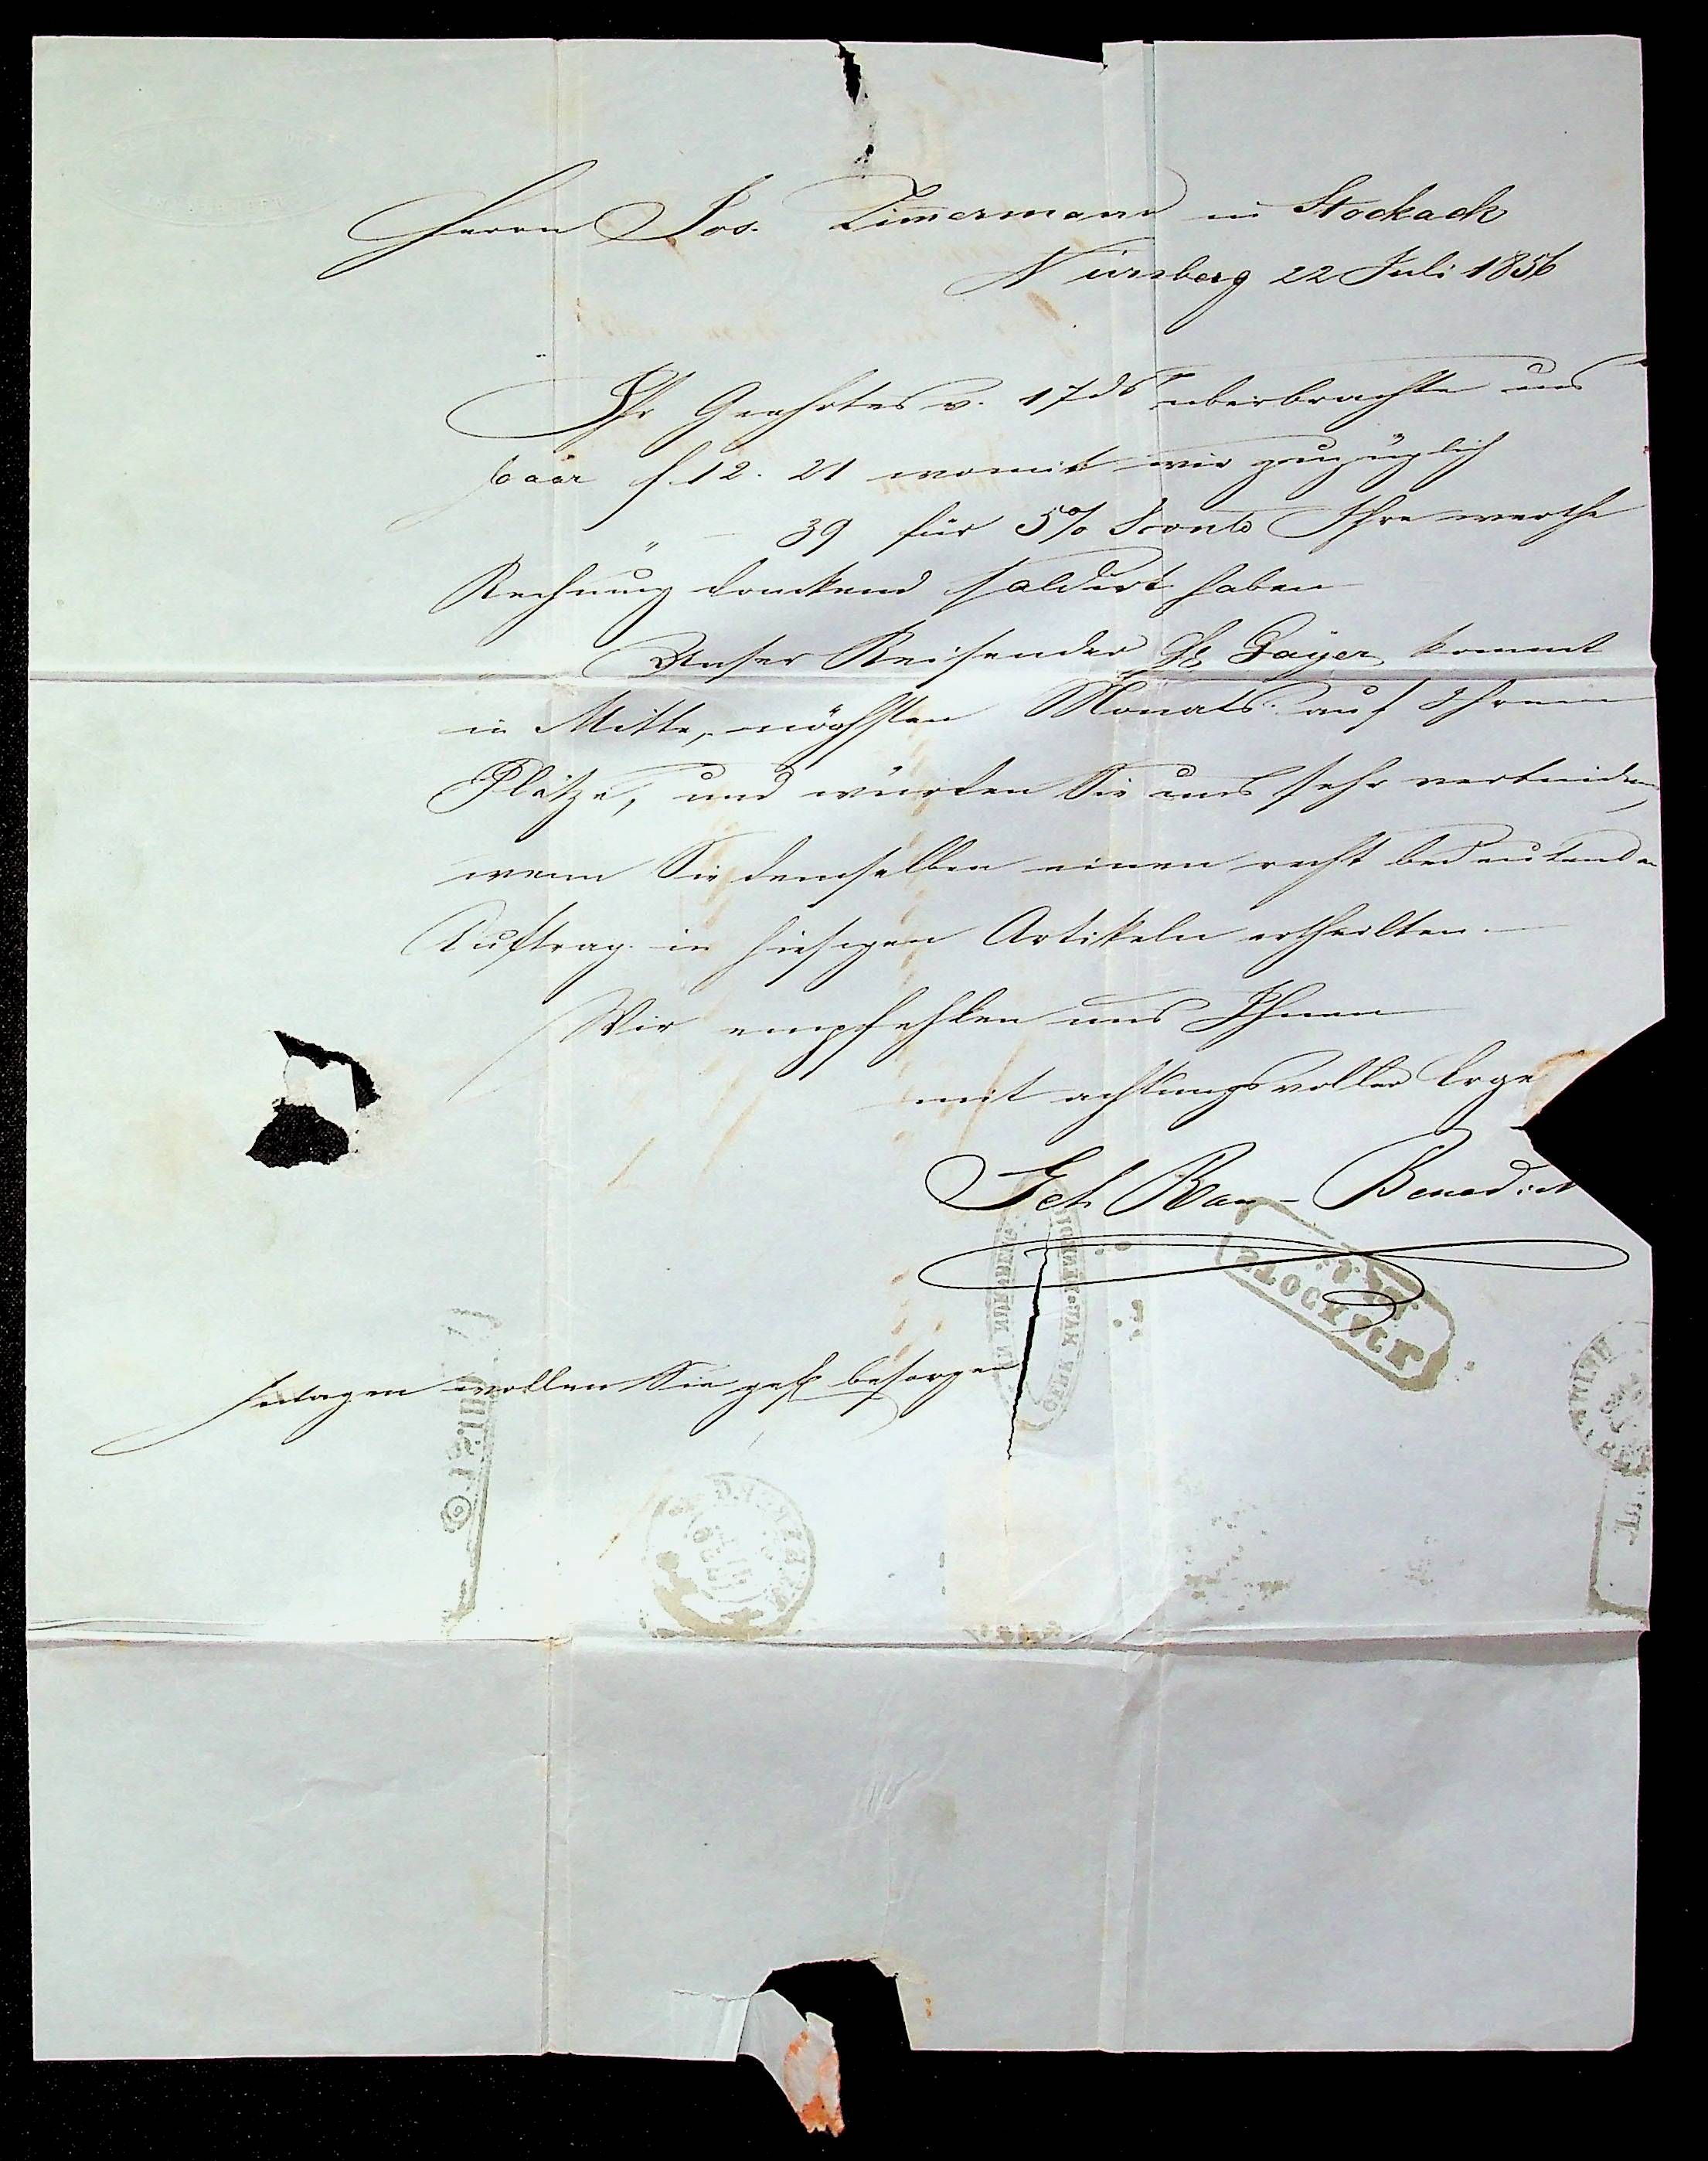 Herrn Jos. Zimmermann in Stockach
Nürnberg 22 Juli 1856
Ihr Geehrtes v. 17 ds überbrachte uns
baar f 12. 21 womit wir zuzüglich
" — 39 für 5% Sconto Ihre werthe
Rechnung dankend saldirt haben
Unser Reisender H. Payer kommt
in Mitte nächsten Monats auf Ihrem
Platze, und würden Sie uns sehr verbinden,
wenn Sie demselben einen recht bedeutenden
Auftrag in hiesigen Artikeln ertheilten.
Wir empfehlen uns Ihnen
mit achtungsvoller
Benedict
Einlagen wollen Sie gefl besorgen